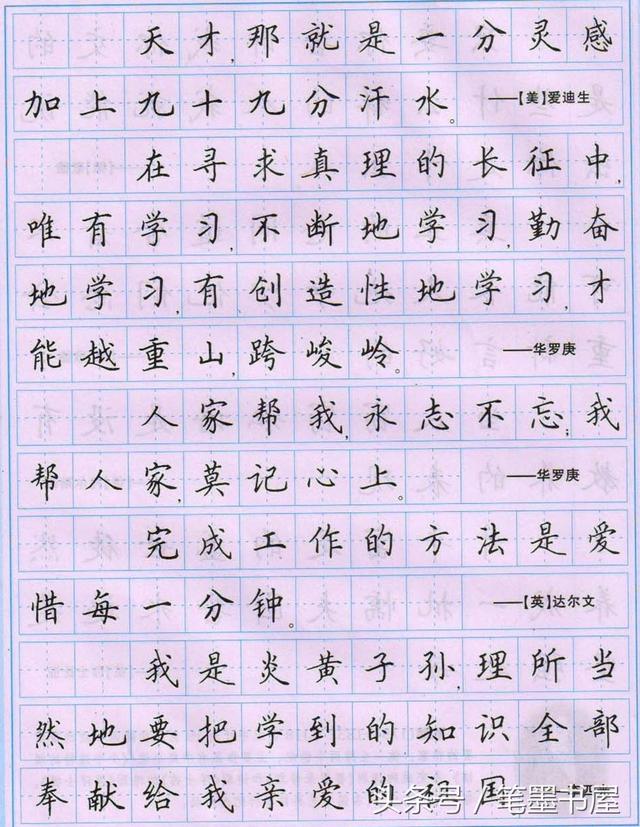 天才,那就是一分灵感
加上九十九分汗水。 ——【美】爱迪生
在寻求真理的长征中,
唯有学习,不断地学习,勤奋
地学习,有创造性地学习,才
能越重山,跨峻岭。 ——华罗庚
人家帮我,永志不忘;我
帮人家,莫记心上。 ——华罗庚
完成工作的方法是爱
惜每一分钟。 ——【英】达尔文
我是炎黄子孙,理所当
然地要把学到的知识全部
奉献给我亲爱的祖国。
头条号/笔墨书屋